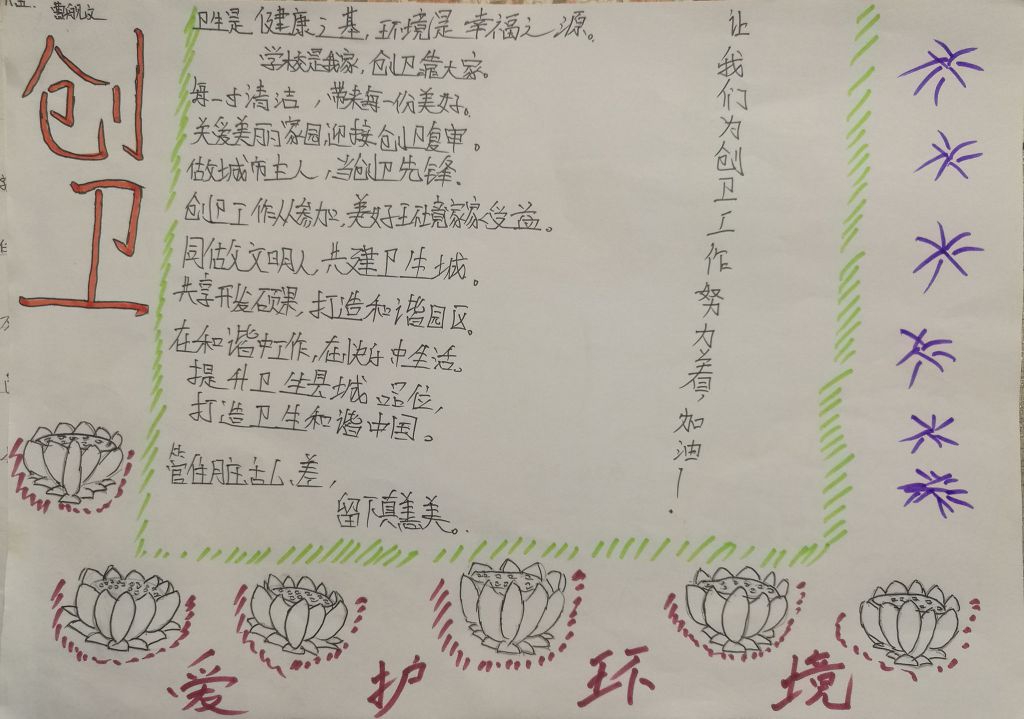 创卫
卫生是健康之基，环境是幸福之源。
学校是我家，创卫靠大家。
每一寸清洁，带来每一份美好。
关爱美丽家园，迎接创卫复审。
做城市主人，当创卫先锋。
创卫工作从参加，美好环境家家受益。
同做文文明人，共建卫生城。
共享开发硕果，打造和谐园区。
在和谐中工作，在快乐中生活。
提升卫生县城品位，
打造卫生和谐中国。
管住脏乱差，
留下真善美。
让我们为创卫工作努力着，加油！
爱护环境